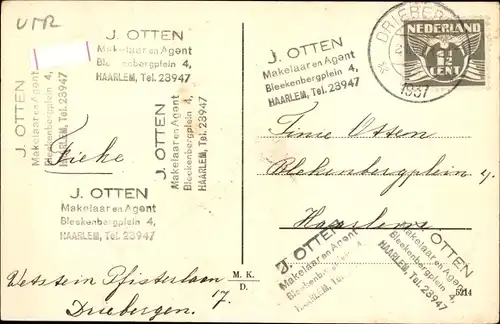 UTR
J. OTTEN
Makelaar en Agent
Bleekenbergplein 4,
HAARLEM, Tel. 23947
J. OTTEN
Makelaar en Agent
Bleekenbergplein 4,
HAARLEM, Tel. 23947
J. OTTEN
Makelaar en Agent
Bleekenbergplein 4,
HAARLEM, Tel. 23947
J. OTTEN
Makelaar en Agent
Bleekenbergplein 4,
HAARLEM, Tel. 23947
Fieke
J. OTTEN
Makelaar en Agent
Bleekenbergplein 4,
HAARLEM, Tel. 23947
DRIEBER
1937
NEDERLAND
1½
CENT
Tinie Otten
Blekenbergplein 4
Haarlem
J. OTTEN
Makelaar en Agent
Bleekenbergplein 4,
HAARLEM, Tel.
OTTEN
Makelaar en Agent
Bleekenbergplein 4,
HAARLEM, Tel. 23947
Wetstein Pfisterlaan
17.
Driebergen.
M. K.
D.
5214